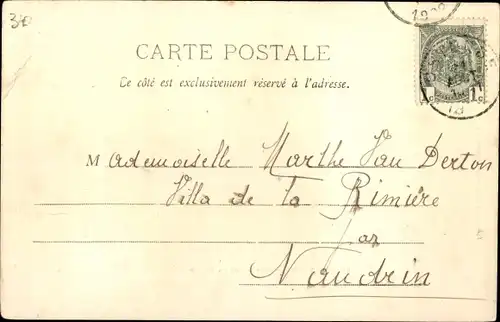 30
1902
CARTE POSTALE
Ce côté est exclusivement réservé à l'adresse.
1 1
Mademoiselle Marthe Van Derton
Villa de la Rimière
par
Nandrin